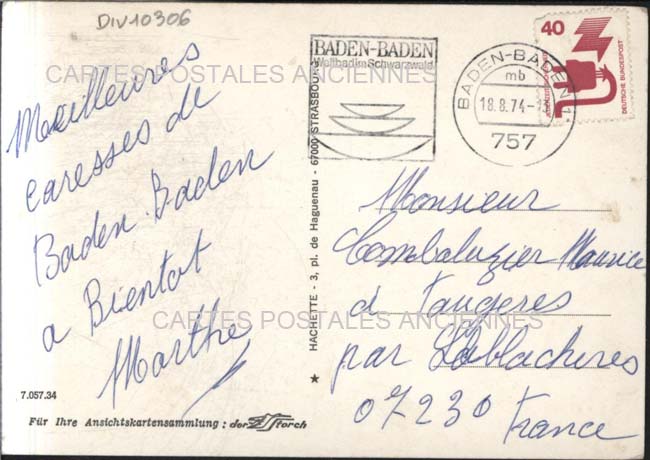 DIV10306
Meilleures
caresses de
Baden Baden
a Bientot
Marthe
7.057.34
Für Ihre Ansichtskartensammlung : der Storch
HACHETTE - 3, pl. de Haguenau - 67000 STRASBOURG
BADEN-BADEN
Weltbad im Schwarzwald
BADEN-BADEN 1
mb
18.8.74-1
757
40
DEUTSCHE BUNDESPOST
Monsieur
Combaluzier Maurice
à Faugeres
par Lablacheres
07230
France
CARTES POSTALES ANCIENNES
CARTES POSTALES ANCIENNES